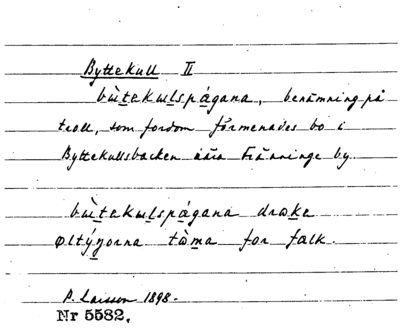 Byttekull II
bùtekulspágana, benämning på
troll, som fordom förmenades bo i
Byttekullsbacken nära Fränninge by.
bùtekulspágana drake
øltýnorna tòma for falk.
P. Larsson 1898.
Nr 5582.